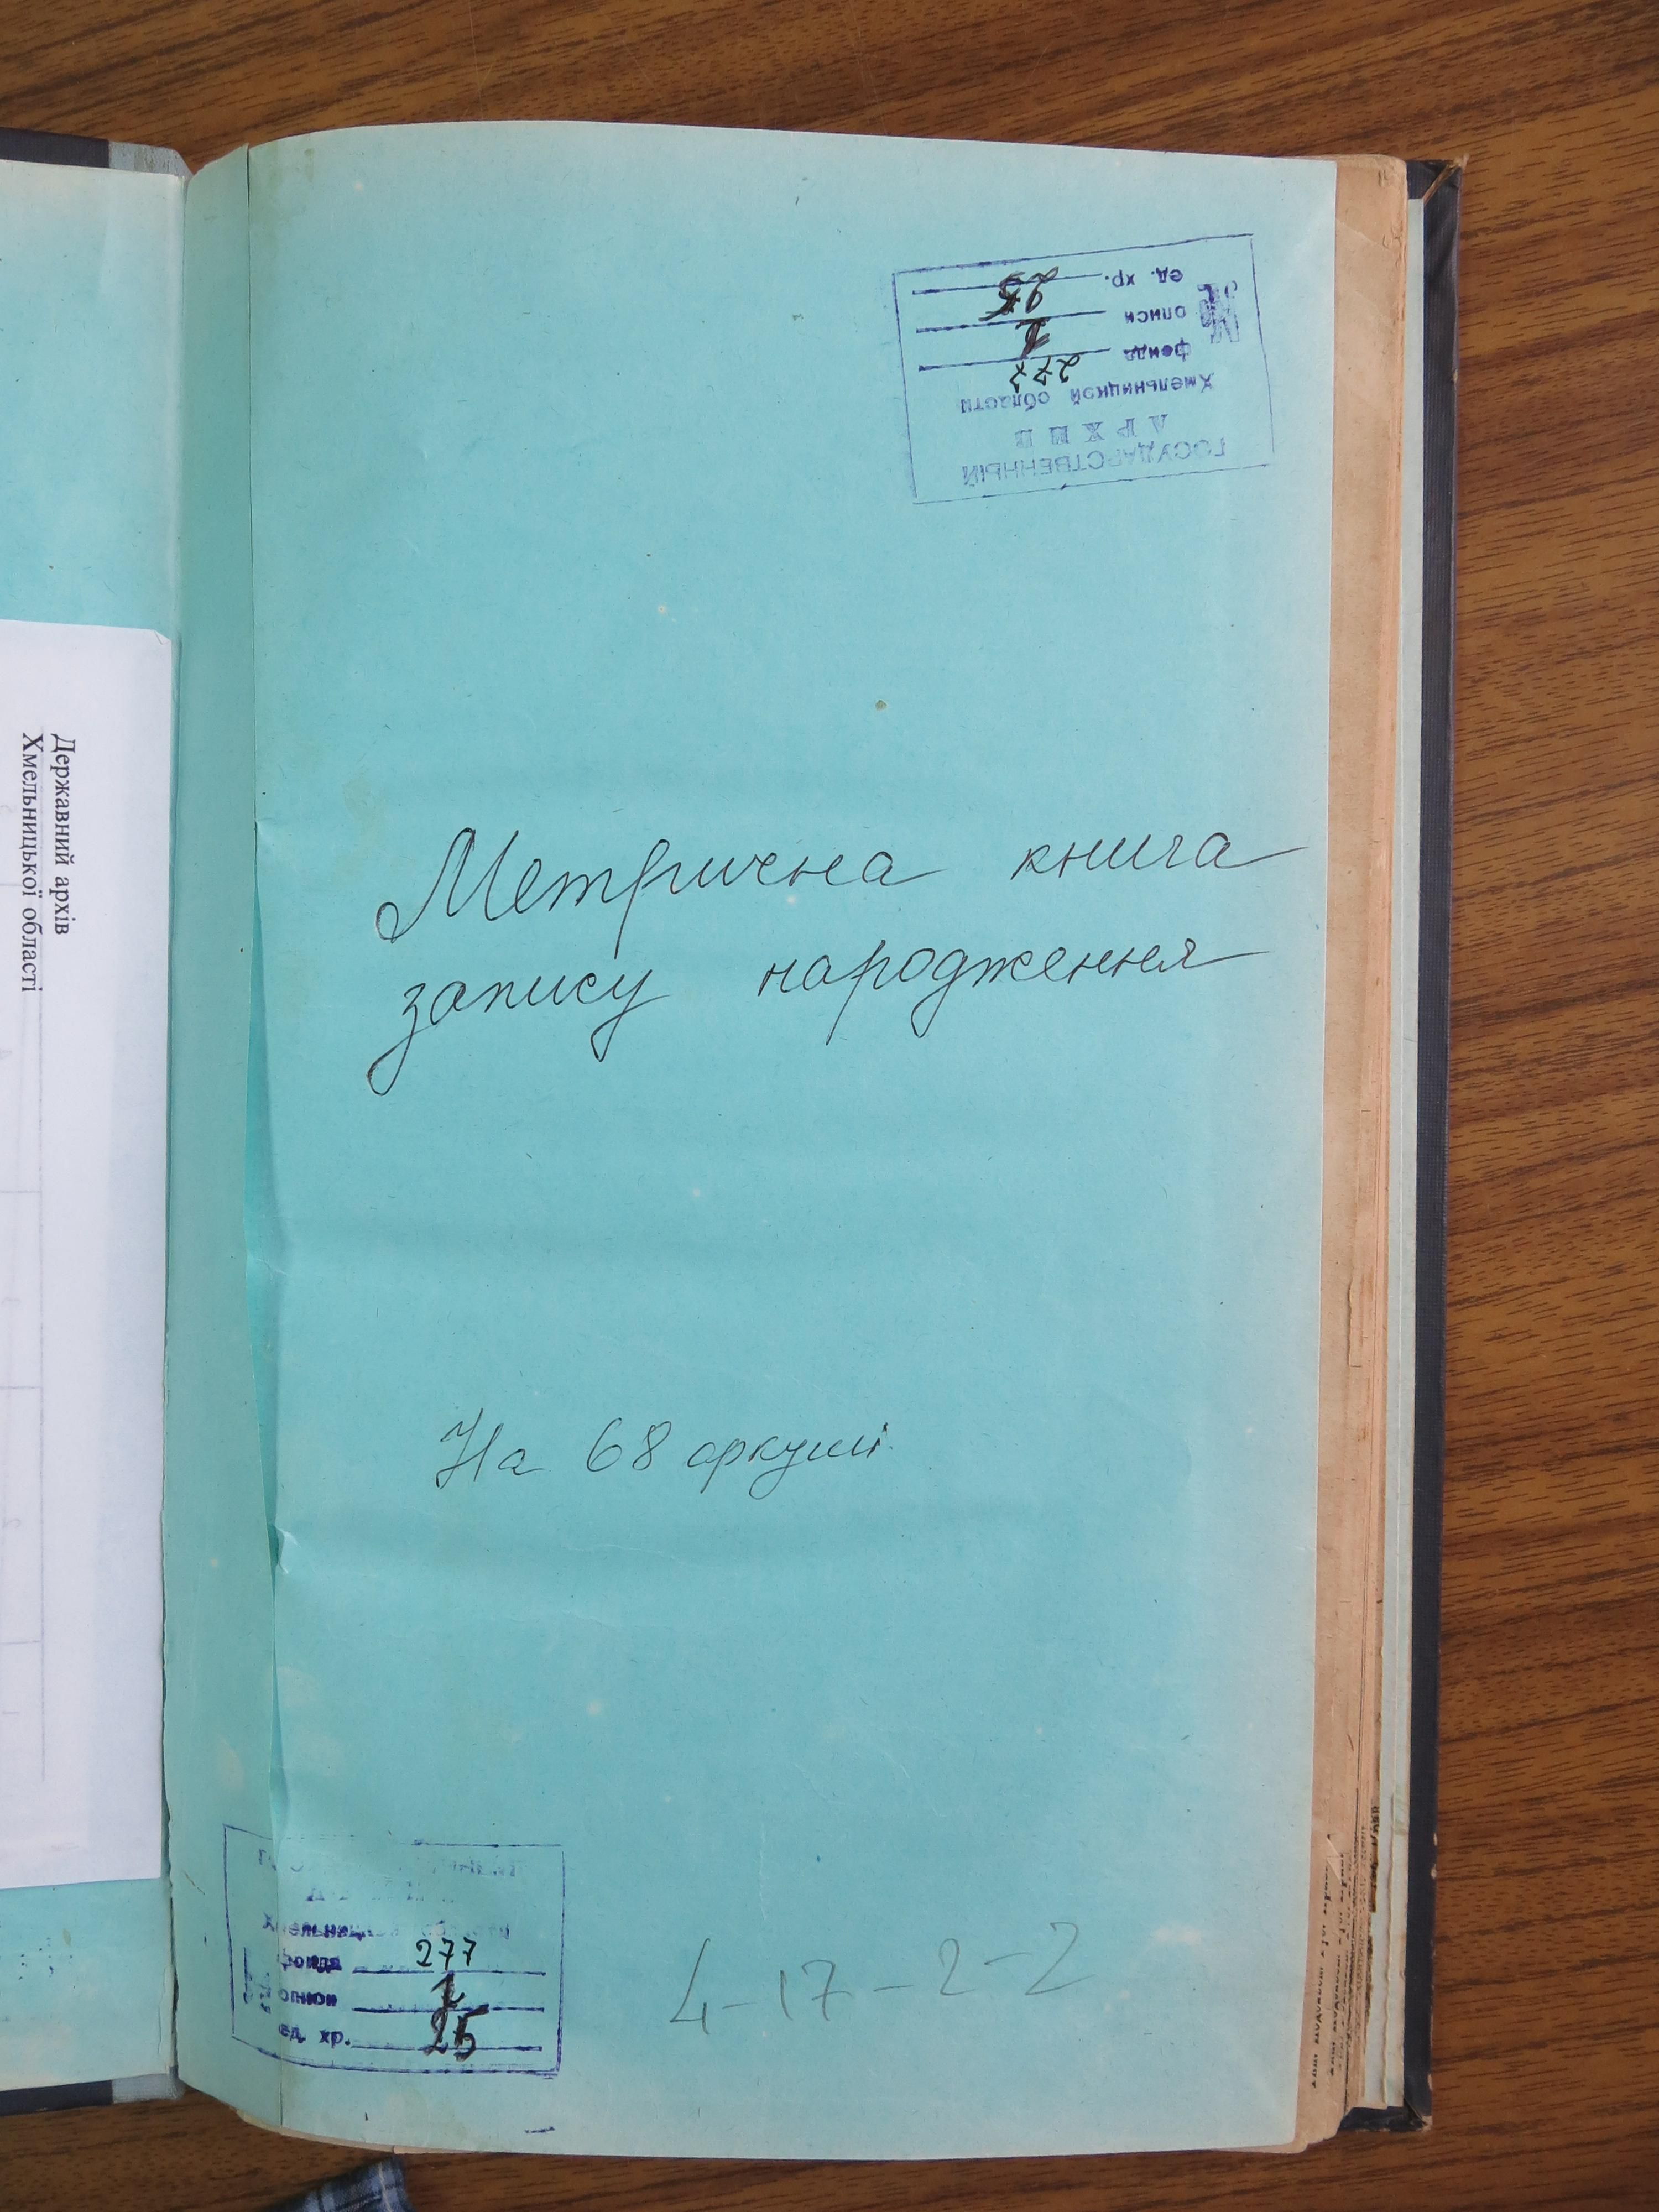 Державний архів
Хмельницької області
ГОСУДАРСТВЕННЫЙ
АРХИВ
Хмельницкой области
фонда 277
описи 1
ед. хр. 25
Метрична книга
запису народження
На 68 аркуші
фонда 277
описи 1
ед. хр. 25
4-17-2-2